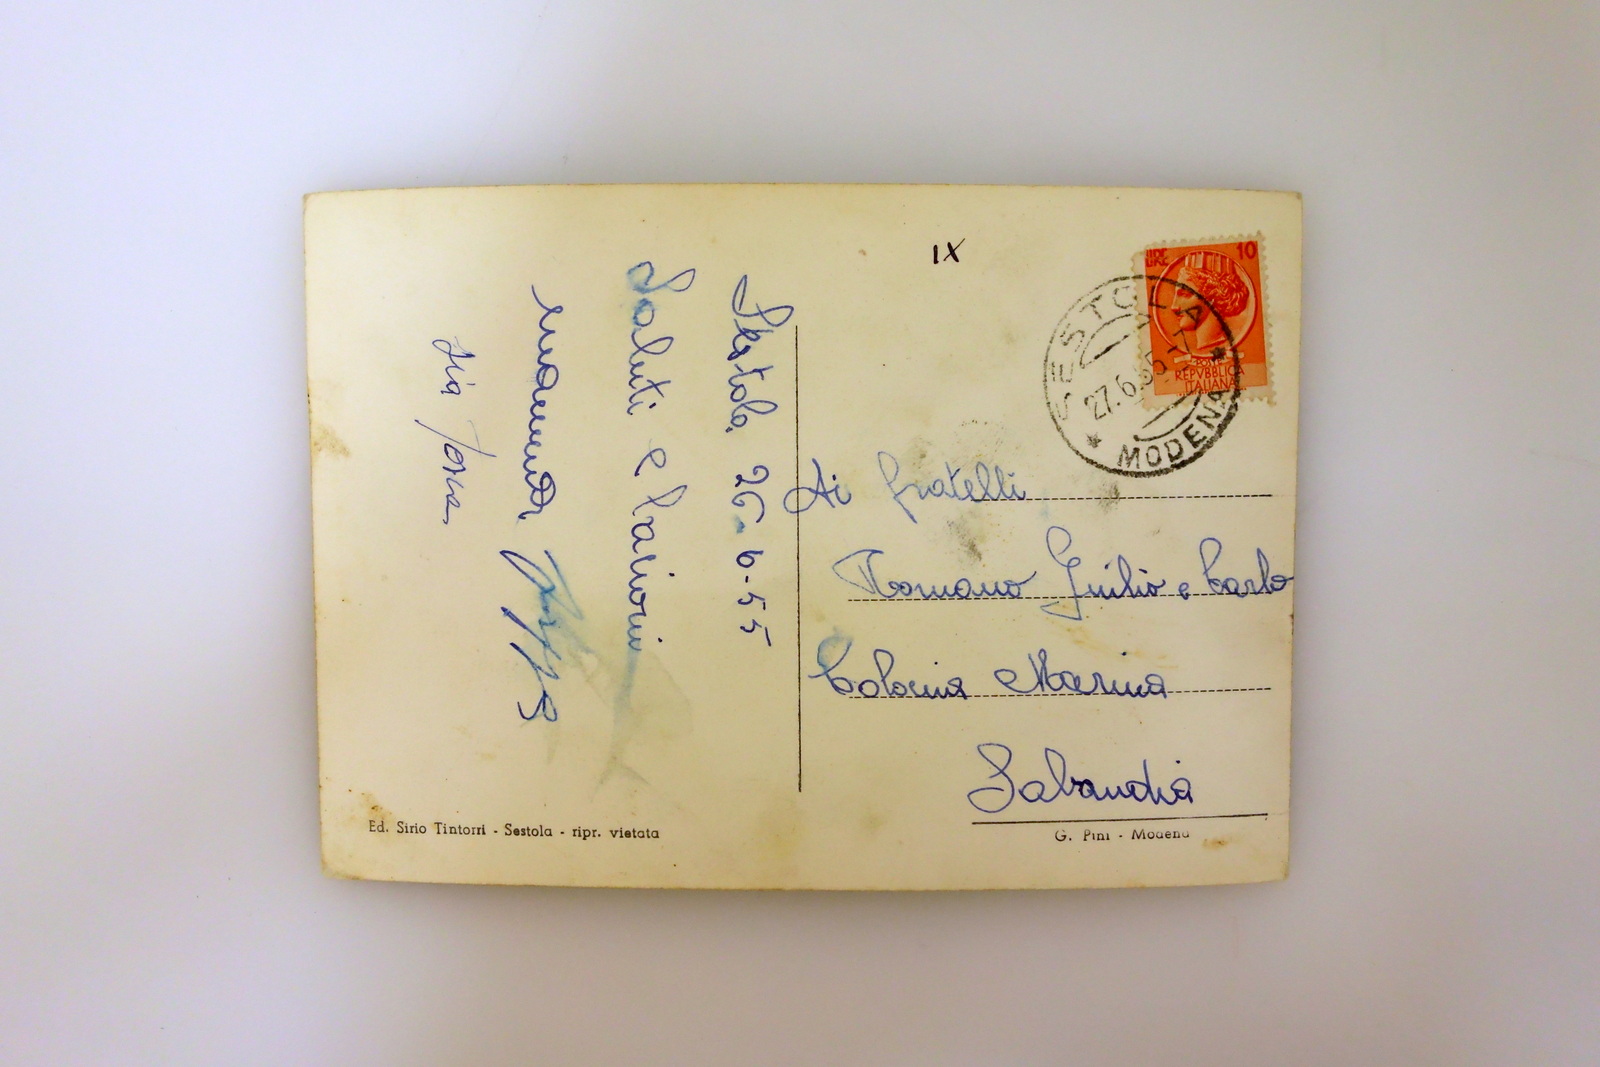 Sestola 26-6-55
Saluti e bacioni
mamma
zia
IX
LIRE 10
POSTE
REPVBBLICA
ITALIANA
SESTOLA
27.6.55-17
MODENA
Ai fratelli
Romano Giulio e Carlo
Colonia Marina
Sabaudia
Ed. Sirio Tintorri - Sestola - ripr. vietata
G. Pini - Modena